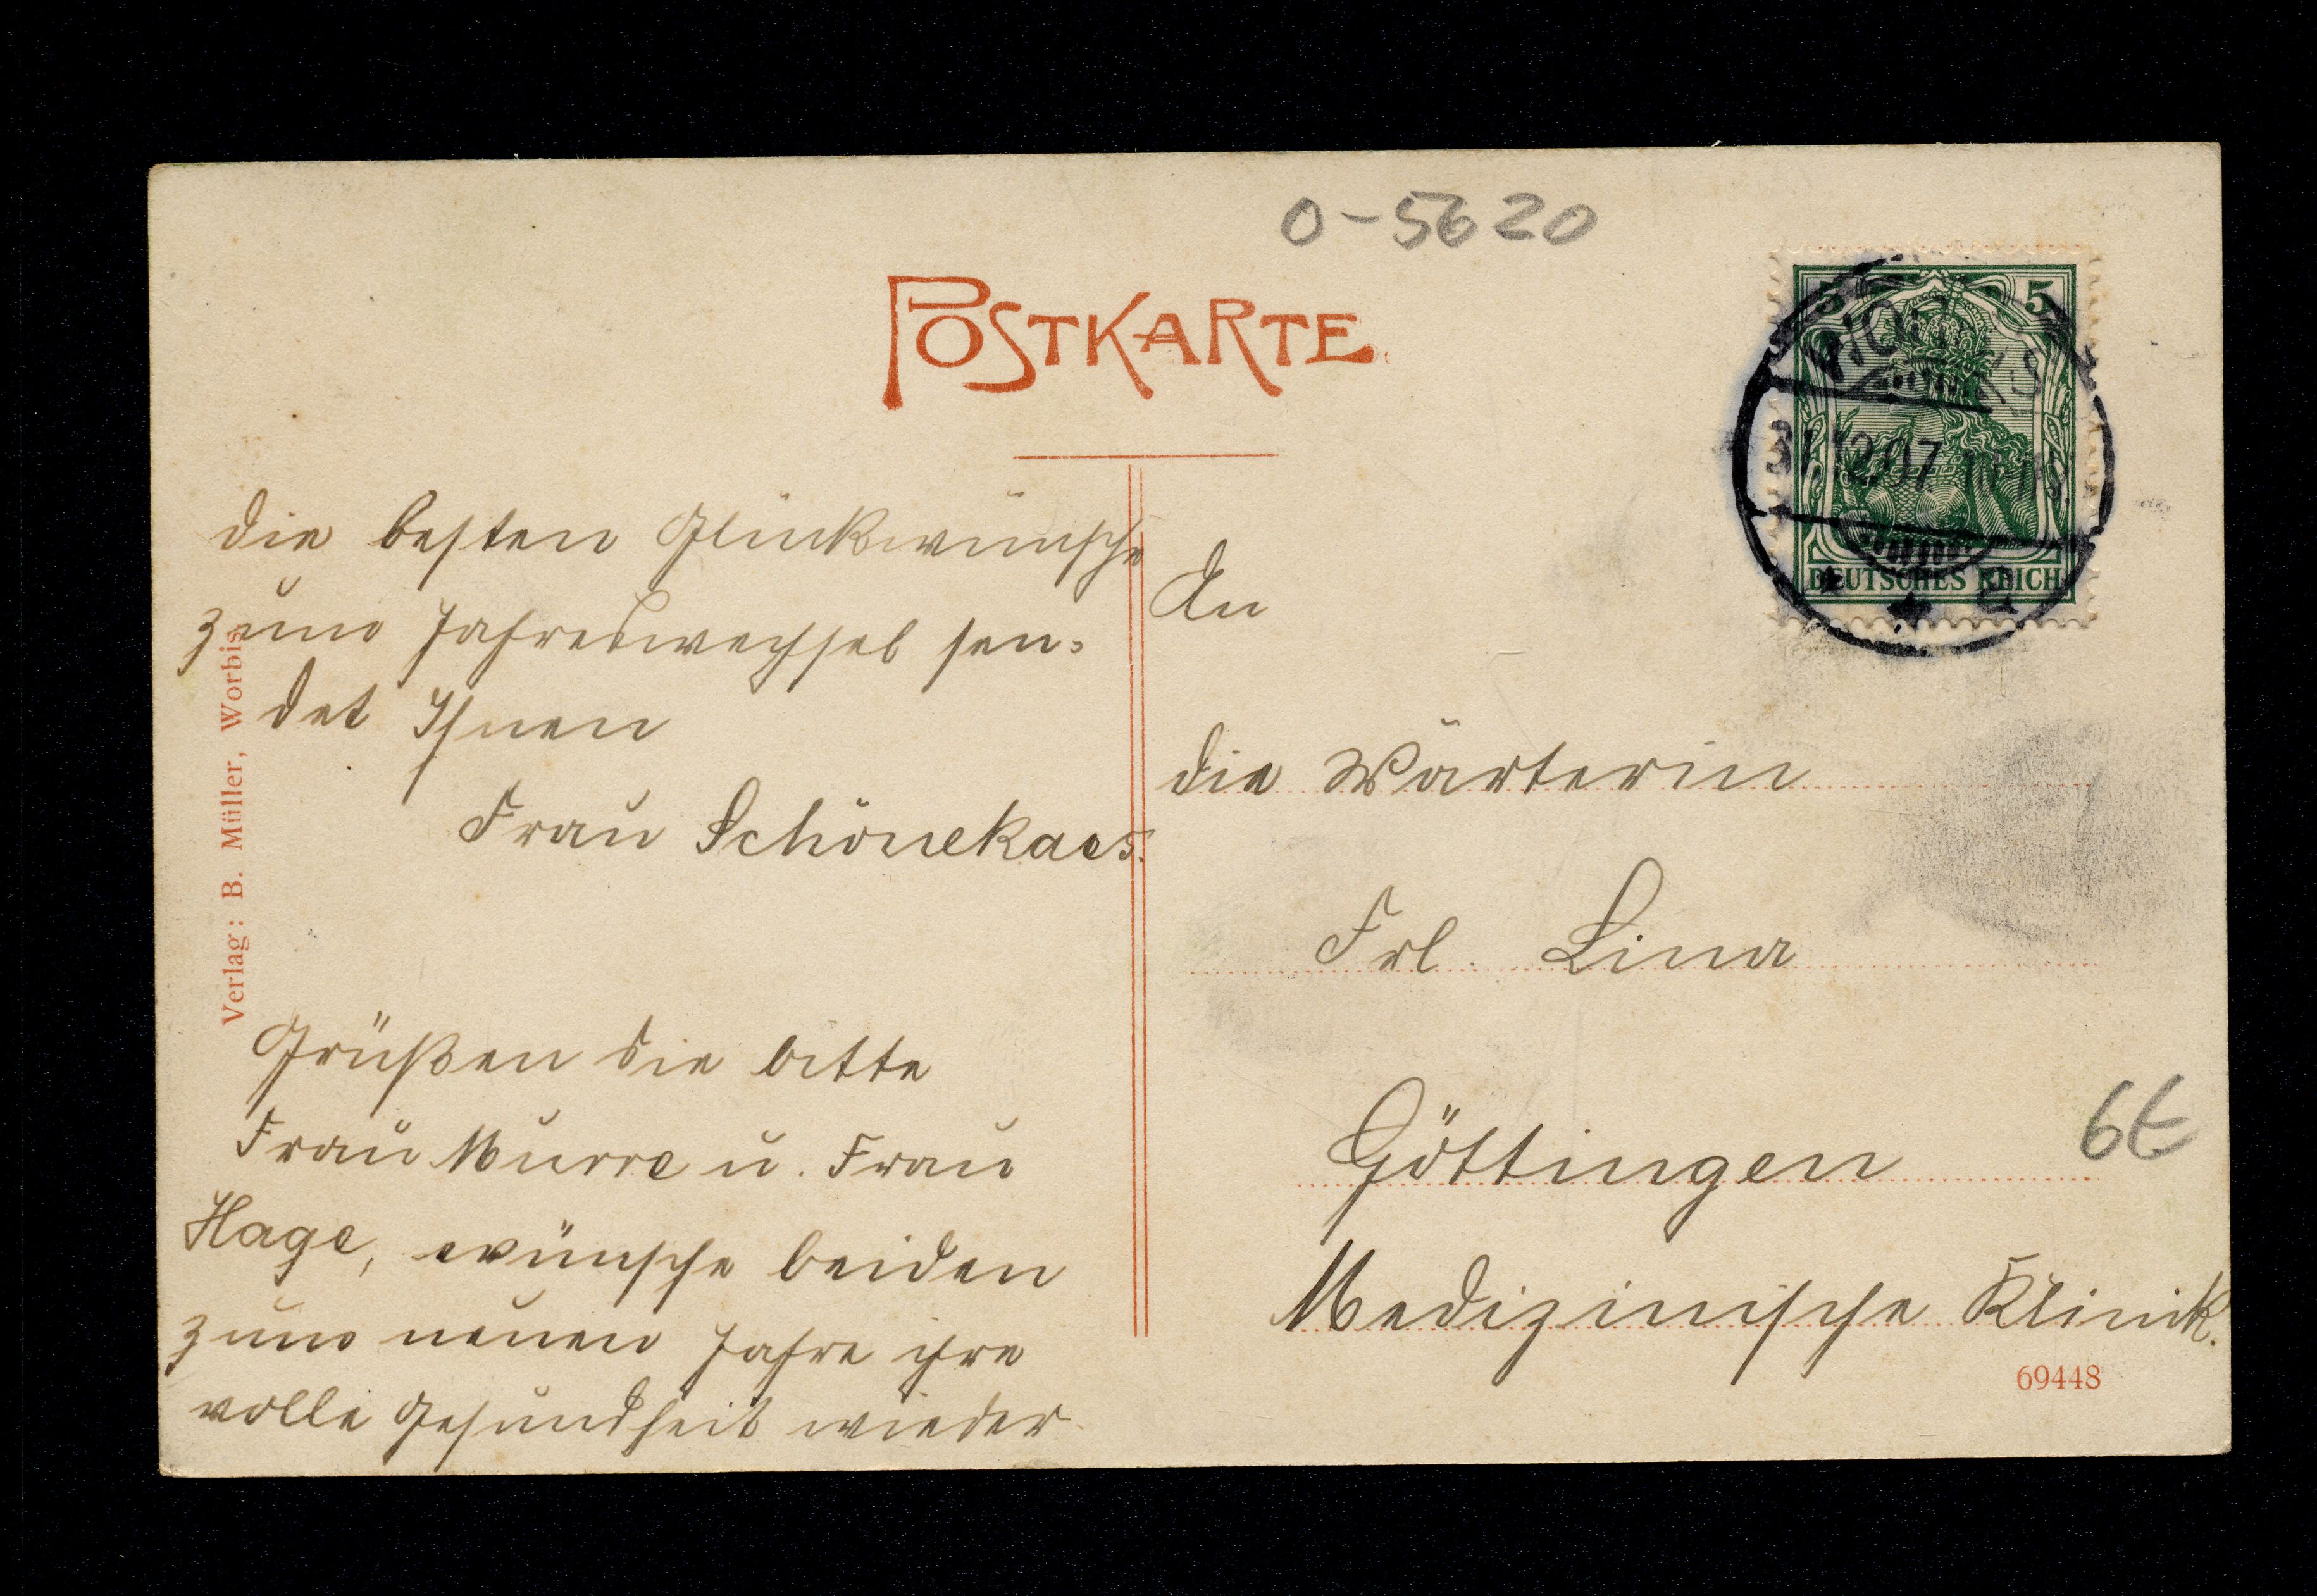 0-5620
POSTKARTE
5 5
31.12.07
DEUTSCHES REICH
die besten Glückwünsche
zum Jahreswechsel sen-
det Ihnen
Frau Schönekaes.
Grüßen Sie bitte
Frau Murre u. Frau
Hage, wünsche beiden
zum neuen Jahre ihre
volle Gesundheit wieder
Verlag: B. Müller, Worbis.
An
die Wärterin
Frl. Lina
Göttingen
6€
Medizinische Klinik.
69448